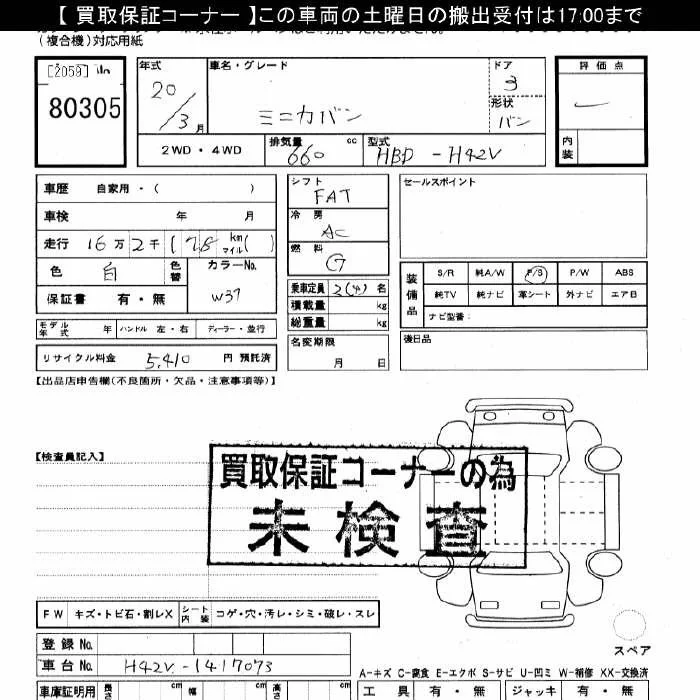 【 買取保証コーナー 】この車両の土曜日の搬出受付は17:00まで
(複合機)対応用紙
[2059]
80305
年式 20/3月
車名・グレード
ミニカバン
ドア 3
形状 バン
評価点
内装
2WD・4WD
排気量 660 cc
型式 HBD-H42V
車歴 自家用・( )
車検 年 月
走行 16万2千(78 km マイル( )
色 白 色替
カラーNo. W37
保証書 有・無
モデル年式 年 ハンドル 左・右 ディーラー・並行
リサイクル料金 5,410 円 預託済
シフト FAT
冷房 AC
燃料 G
乗車定員 2(4)名
積載量 kg
総重量 kg
名変期限
月 日
セールスポイント
装備品
S/R 純A/W P/S P/W ABS
純TV 純ナビ 革シート 外ナビ エアB
ナビ型番:
後日品
【出品店申告欄(不良箇所・欠品・注意事項等)】
【検査員記入】
買取保証コーナーの為
未検査
FW キズ・トビ石・割レX シート内装 コゲ・穴・汚レ・シミ・破レ・スレ
登録No.
車台No. H42V-1417073
スペア
A-キズ C-腐食 E-エクボ S-サビ U-凹ミ W-補修 XX-交換済
車庫証明用 長さ cm 幅 cm 高さ cm
工具 有・無 ジャッキ 有・無